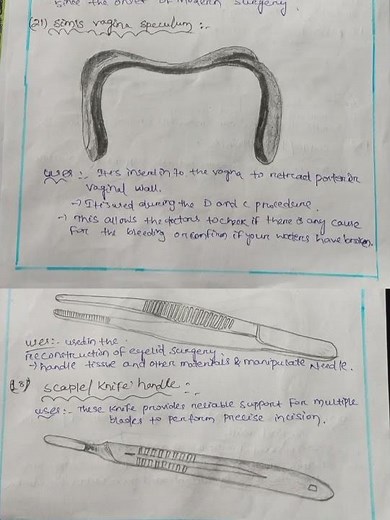 since the onset of modern surgery.
(21) Sim's vagina speculum :-
uses :- It is insert in to the vagina to retread posterior
vaginal wall.
→ It is used during the D and C procedure.
→ This allows the doctors to check if there is any cause
For the bleeding or confirm if your waters have broken.
uses:- used in the
reconstruction of eyelid surgery.
→ handle tissue and other materials & manipulate Needle.
18) scaple/ knife handle :-
uses :- These knife provides reliable support for multiple
blades to perform precise incision.